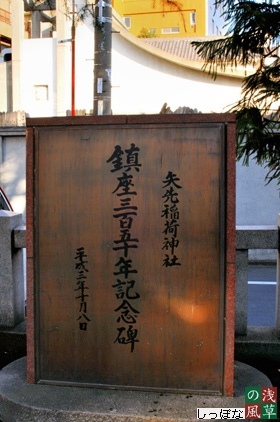 矢先稲荷神社
鎮座三百五十年記念碑
平成三年十月八日
浅草の風
しっぽな